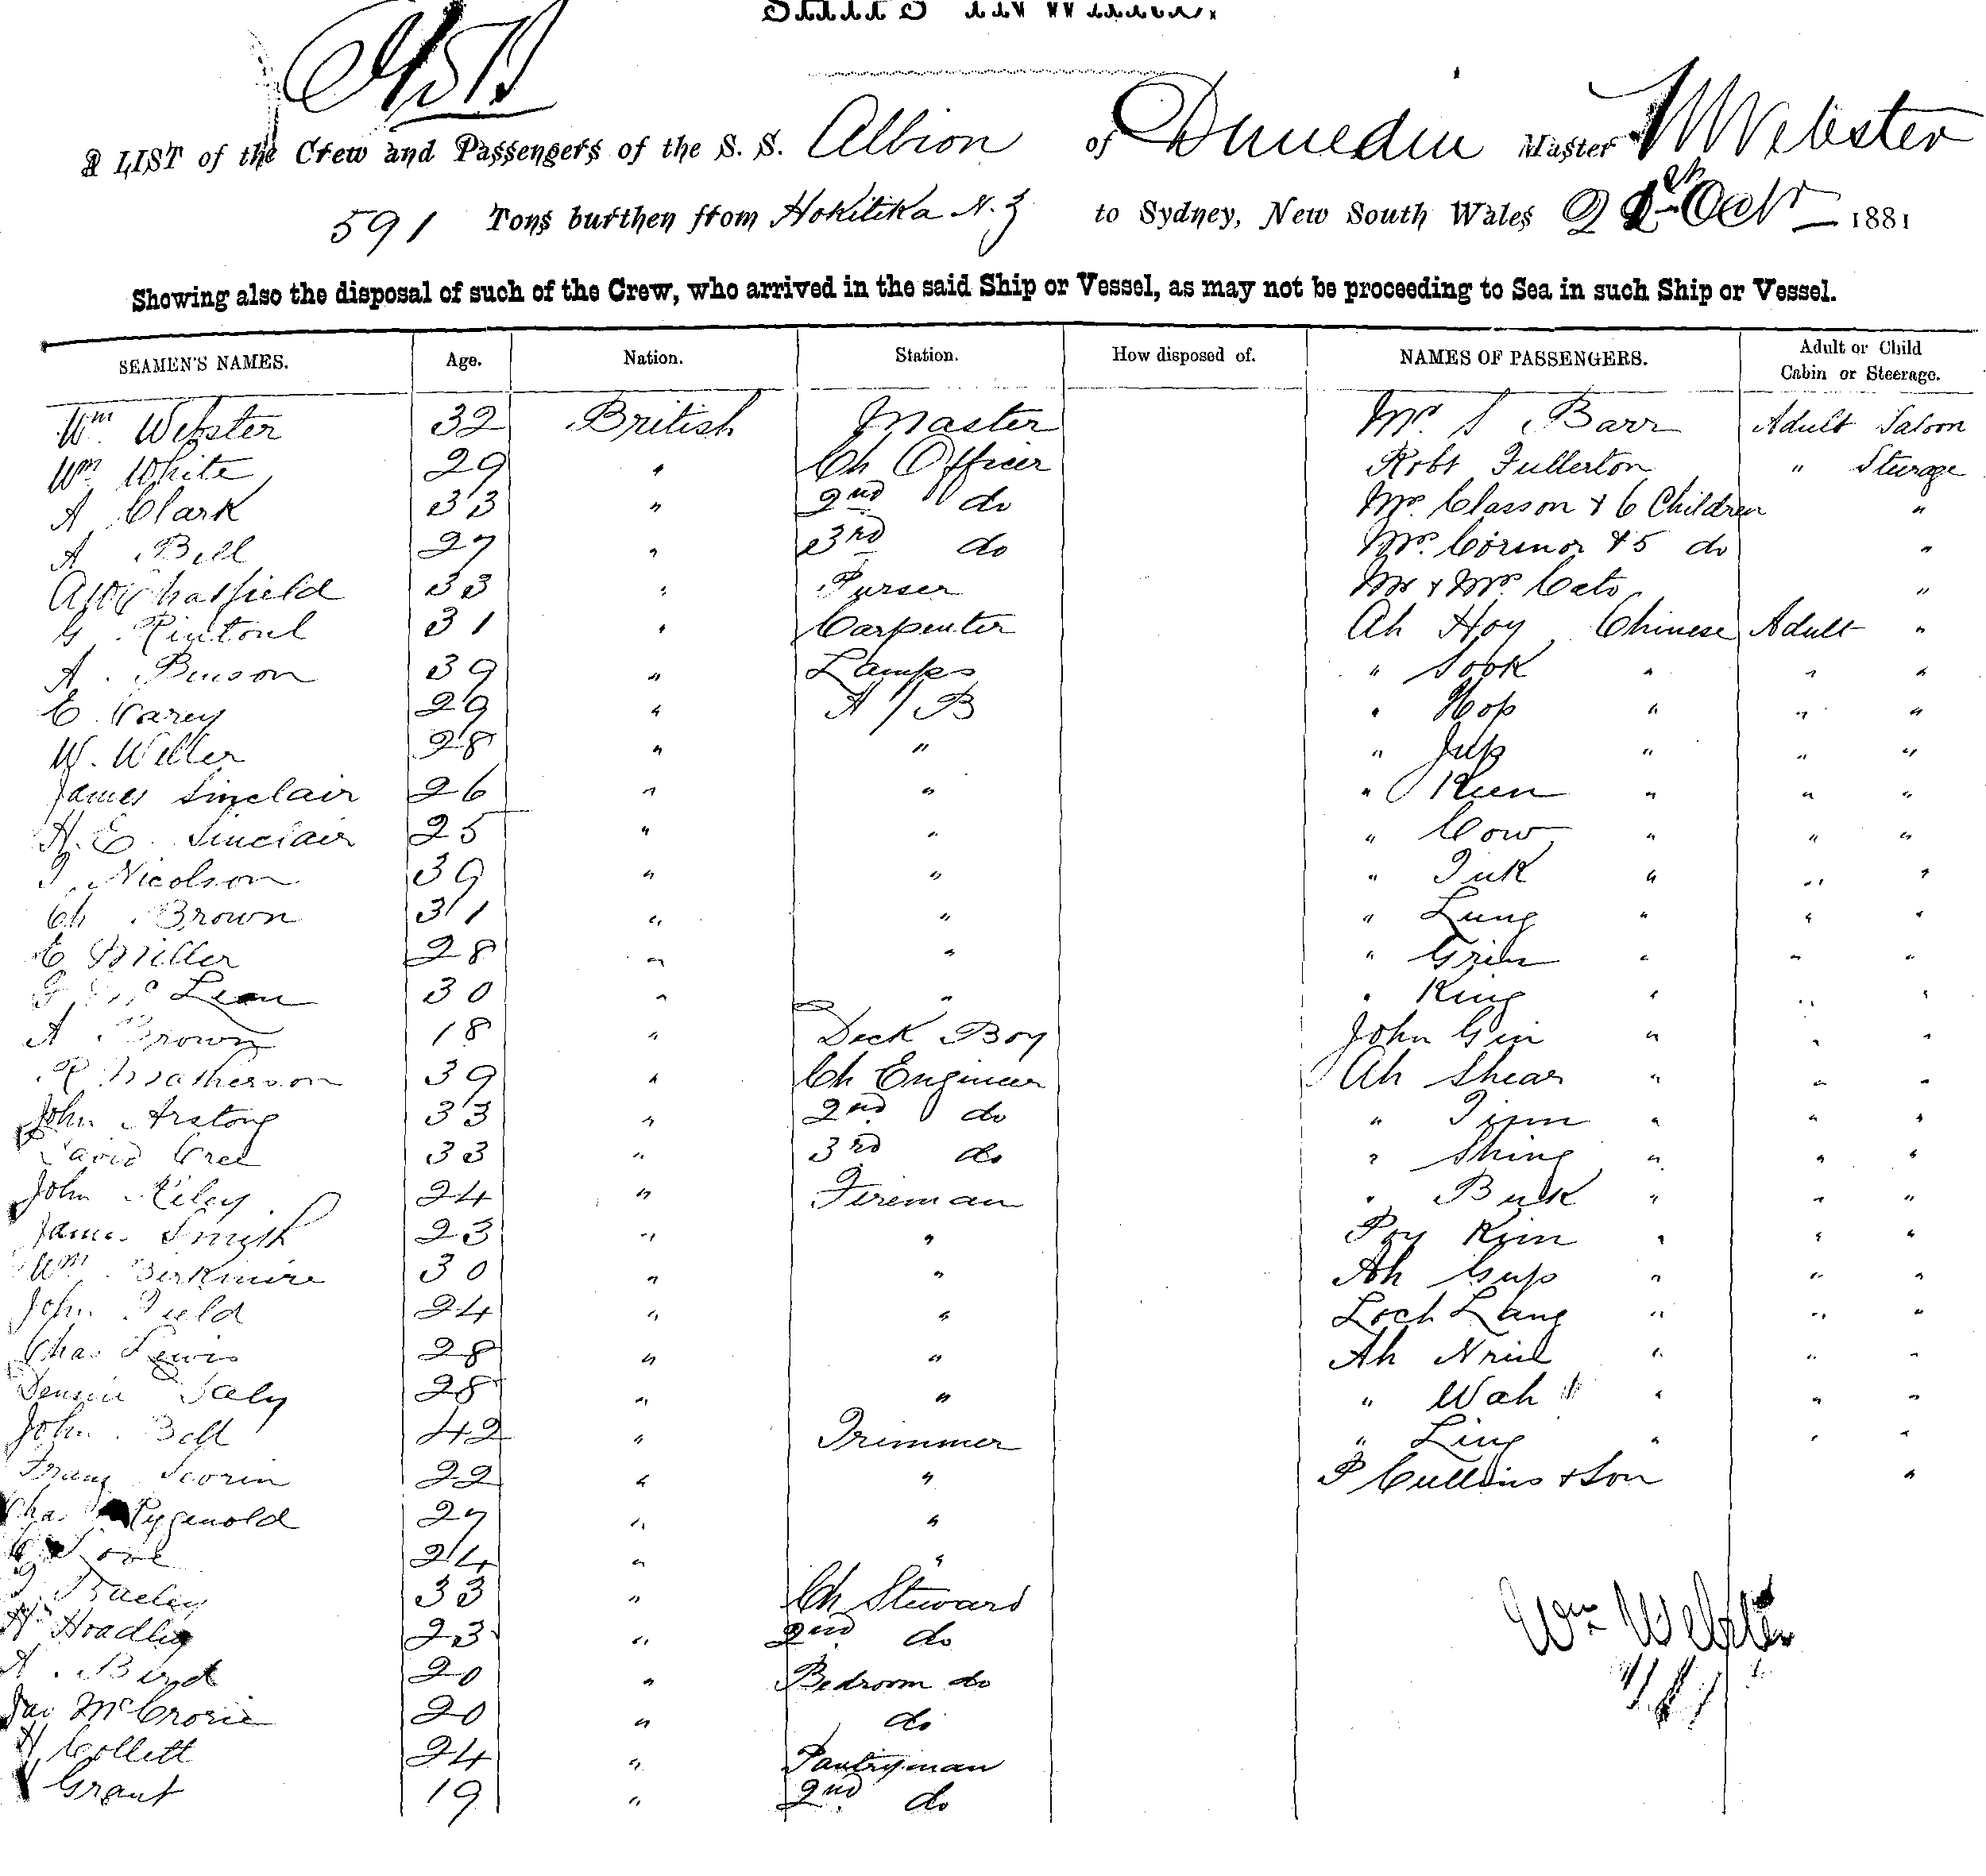 A LIST of the Crew and Passengers of the S. S. Albion of Dunedin Master W Webster
591 Tons burthen from Hokitika N. Z to Sydney, New South Wales Octr 1881
Showing also the disposal of such of the Crew, who arrived in the said Ship or Vessel, as may not be proceeding to Sea in such Ship or Vessel.
SEAMEN'S NAMES. Age. Nation. Station. How disposed of. NAMES OF PASSENGERS. Adult or Child Cabin or Steerage.
Wm Webster 32 British Master Mr S Barr Adult Saloon
Wm White 29 " Ch Officer Robt Fullerton " Steerage
A Clark 33 " 2nd do Mrs Classon & 6 Children "
A Bell 27 " 3rd do Mrs & 5 do "
Chatfield 33 " Purser Mr & Mrs Cato "
G Rintoul 31 " Carpenter Ah Hoy Chinese Adult "
A. Benson 39 " Lamps " Sook " " "
E. Varey 29 " A/B " Hop " " "
W. Weller 28 " " " Jup " " "
James Sinclair 26 " " " Keen " " "
H. E. Sinclair 25 " " " Cow " " "
Nicolson 39 " " " Tuk " " "
Ch Brown 31 " " " Lung " " "
E Miller 28 " " " " " "
Mc Lean 30 " " " King " " "
A Brown 18 " Deck Boy John Gin " " "
R Matherson 39 " Ch Engineer Ah Shear " " "
John Arstong 33 " 2nd do " Tinn " " "
David Cree 33 " 3rd do " Shing " " "
John Riley 24 " Fireman " Buk " " "
James Smyth 23 " " Poy Kim " " "
Wm Birkmire 30 " " Ah Gup " " "
John Field 24 " " Loch Lang " " "
Chas Lewis 28 " " Ah " " "
Dennis Daly 28 " " " Wah " " "
John Bell 42 " Trimmer " Ling " " "
Franz Scorin 22 " " P Cullins & Son "
Chas 27 " "
24 " "
33 " Ch Steward
H Hoadley 23 " 2nd do
A. Bird 20 " Bedroom do
Jas McCrorie 20 " do
H Collett 24 " Pantryman
Grant 19 " 2nd do
Wm Webster